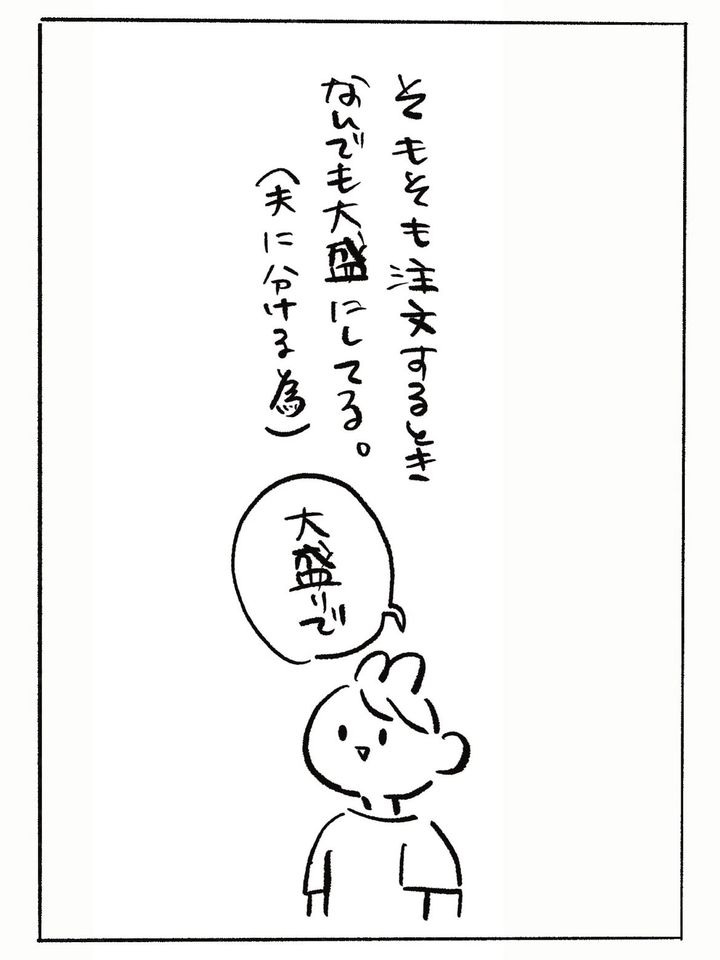 そもそも注文するとき
なんでも大盛にしてる。
(夫に分ける為)
大盛りで